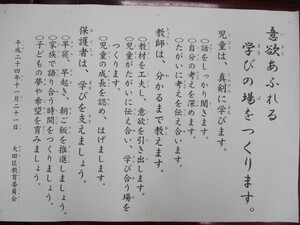 意欲あふれる
学びの場をつくります。
児童は、真剣に学びます。
○話をしっかり聞きます。
○自分の考えを深めます。
○たがいに考えを伝え合います。
教師は、分かるまで教えます。
○教材を工夫し、意欲を引き出します。
○児童がたがいに伝え合い、学び合う場を
つくります。
○児童の成長を認め、はげまします。
保護者は、学びを支えましょう。
○早寝、早起き、朝ご飯を推進しましょう。
○家族で語り合う時間をつくりましょう。
○子どもの夢や希望を育みましょう。
平成二十四年十一月二十一日
大田区教育委員会